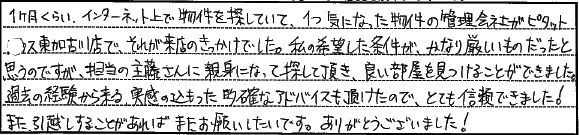 1ヶ月くらい、インターネット上で物件を探していて、1つ気になった物件の管理会社がピタット
ハウス東加古川店で、それが来店のきっかけでした。私の希望した条件が、かなり厳しいものだったと
思うのですが、担当の主藤さんに親身になって探して頂き、良い部屋を見つけることができました。
過去の経験から来る、実感の込もった的確なアドバイスも頂けたので、とても信頼できました！
また引越しすることがあればまたお願いしたいです。ありがとうございました！